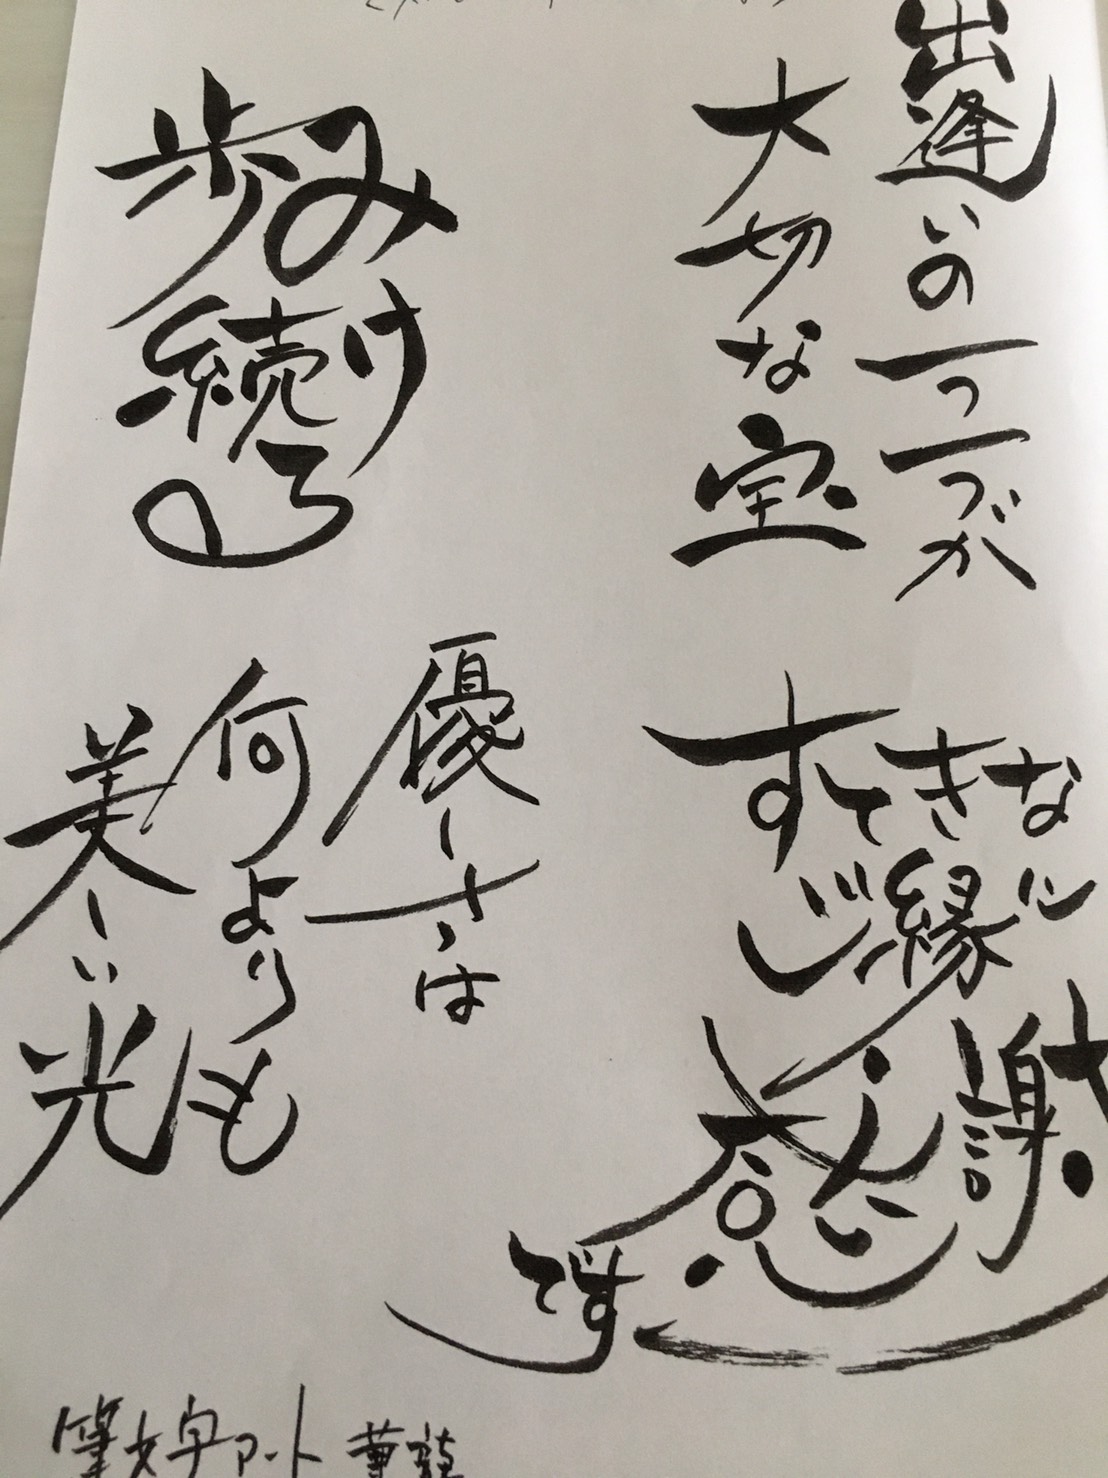 出逢いの一つ一つが
大切な宝
歩み
続け
る
すてきな
ご縁に
感謝
です
優しさは
何よりも
美しい光
筆文字アート